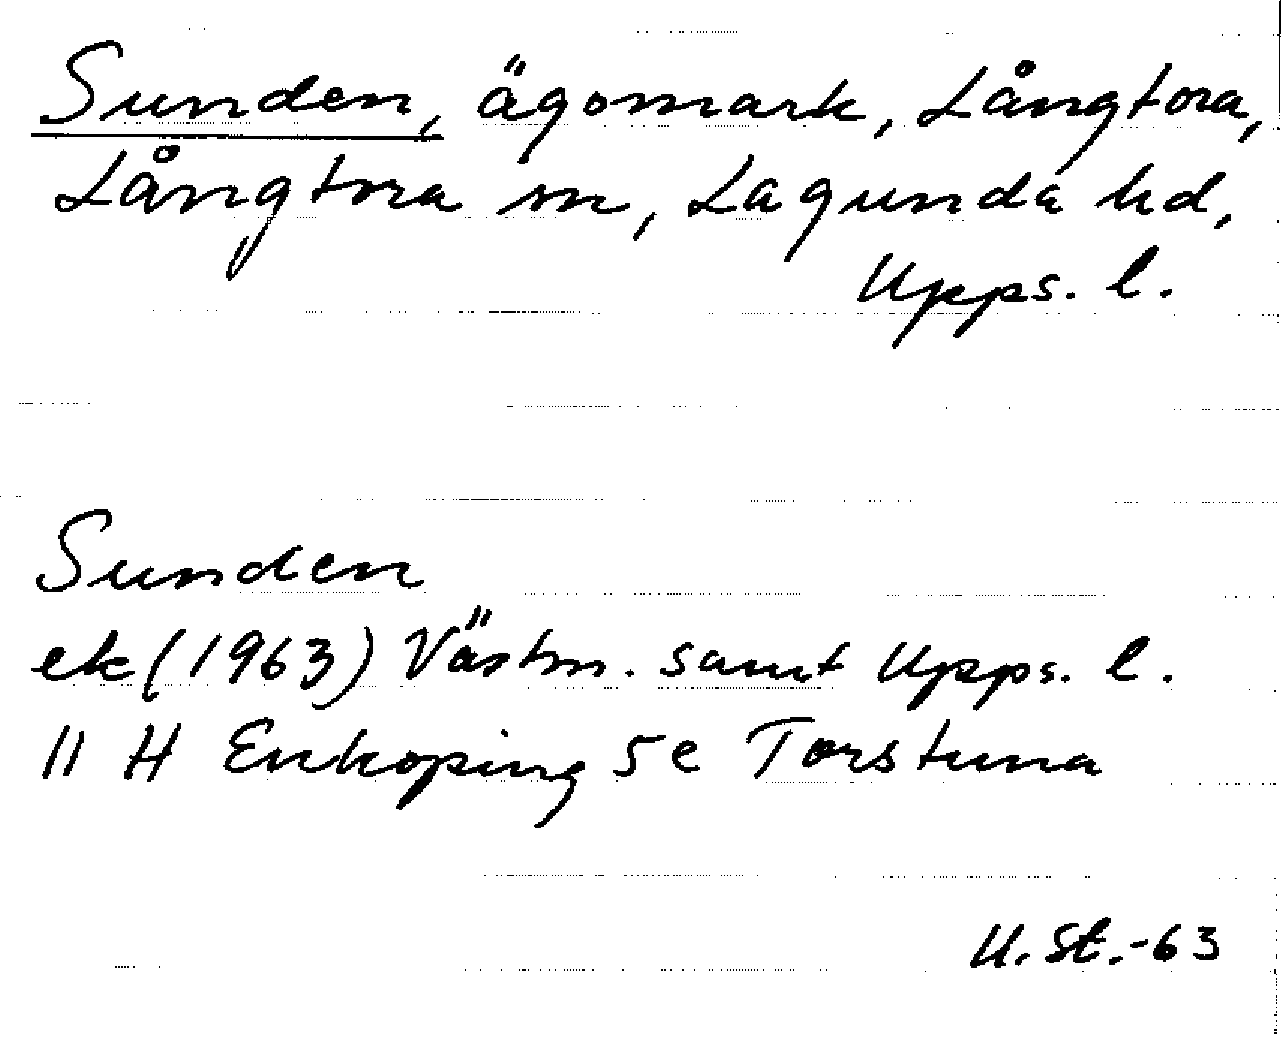 Sunden, ägomark, Långtora,
Långtora sn, Lagunda hd,
Upps. l.
Sunden
ek (1963) Västm. samt Upps. l.
11 H Enköping 5e Torstuna
U. St. -63